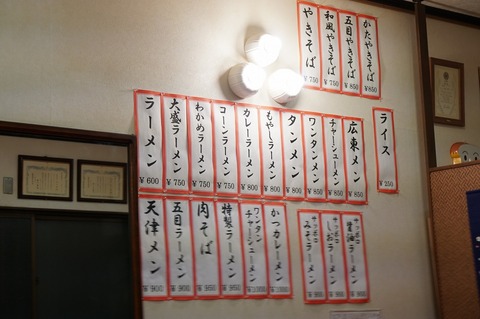 かたやきそば ¥850
五目やきそば ¥850
和風やきそば ¥750
やきそば ¥750
ライス ¥250
広東メン ¥850
チャーシューメン ¥850
ワンタンメン ¥850
タンメン ¥800
もやしラーメン ¥800
カレーラーメン ¥800
コーンラーメン ¥750
わかめラーメン ¥750
大盛ラーメン ¥750
ラーメン ¥600
サッポロ醤油ラーメン
サッポロしおラーメン
サッポロみそラーメン
かつカレーラーメン
ワンタンチャーシューメン
特製ラーメン ¥950
肉そば ¥950
五目ラーメン ¥900
天津メン ¥900